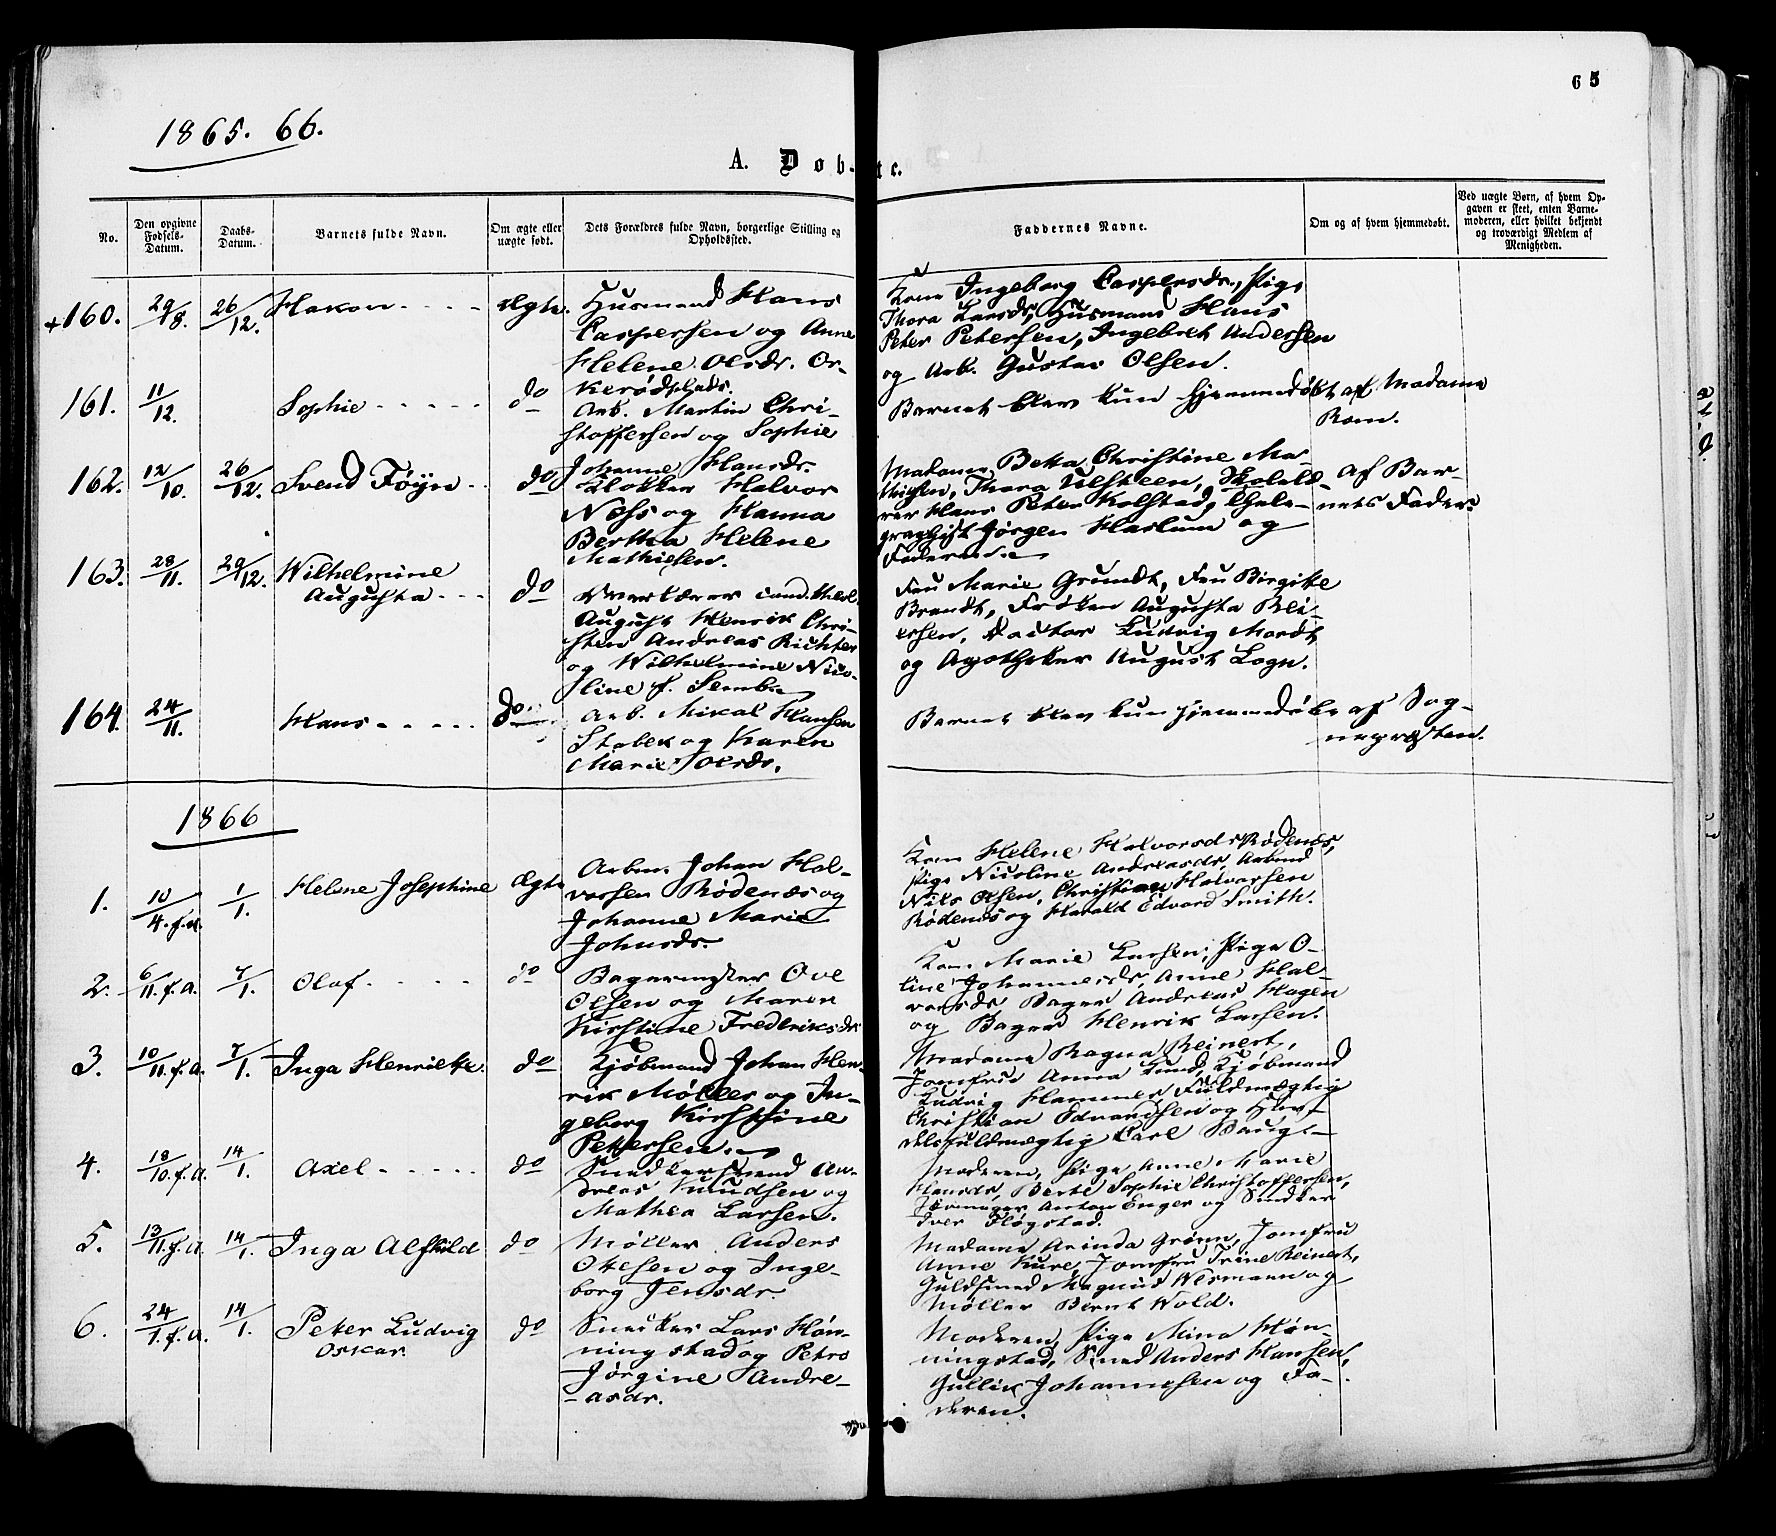 65
1865. 66.
A. Døbte.
No.
Den opgivne Fødsels-Datum.
Daabs-Datum.
Barnets fulde Navn.
Om ægte eller uægte født.
Dets Forældres fulde Navn, borgerlige Stilling og Opholdssted.
Faddernes Navne.
Om og af hvem hjemmedøbt.
Ved uægte Børn, af hvem Opgaven er skeet, enten Barnemoderen, eller hvilket bekjendt og troværdigt Medlem af Menigheden.
+160. 29/8. 26/12. Hakon - - - - ægte.
Husmand Hans
Caspersen og Anne
Helene Olsdr. Or-
kerødplads.
Kone Ingeborg Caspersdr., Pige
Thora Larsdr, Husmand Hans
Peter Petersen, Ingebret Andersen
og Arb. Gustav Olsen.
161. 11/12. Sophie - - - - - do
Arb. Martin Chri-
stoffersen og Sophie
Johanne Hansdr.
Barnet blev kun hjemmedøbt af Madame
Rom.
162. 12/10. 26/12. Svend Føyn - - do
Klokker Halvor
Næss og Hanna
Bertha Helene
Mathiesen.
Madame Betta Christine Ma-
thisen, Thora Ulsteen, Skolelæ-
rer Hans Peter Kolstad, Thele-
graphist Jørgen Haslum og
Faderen.
af Bar-
nets Fader.
163. 28/11. 29/12. Wilhelmine
Augusta - - - do
Overlærer cand. theol.
August Henrik Chri-
sten Andreas Richter
og Wilhelmine Nico-
line f. Semb.
Fru Marie Grundt, Fru Birgitte
Brandt, Frøken Augusta Bei-
ersen, Doctor Ludvig Mordt
og Apotheker August Logn.
164. 24/11. Hans - - - - - do.
Arb. Mikal Hansen
Stabek og Karen
Marie Olsdr.
Barnet blev kun hjemmedøbt af Sog-
nepræsten.
1866
1. 10/4. f.a. 1/1. Helene Josephine ægte
Arbm. Johan Hal-
vorsen Rødenæs og
Johanne Marie
Johnsdr.
Kone Helene Halvorsdr Rødenæs,
Pige Nicoline Andreasdr, Arbmd
Nils Olsen, Christian Halvorsen
Rødenæs og Harald Edvard Smith.
2. 6/11. f.a. 7/1. Olaf - - - - do
Bagermester Ove
Olsen og Maren
Kirstine Frederiksdr
Kone Marie Larsen, Pige O-
line Johannesdr, Anne Hal-
vorsdr Bager Andreas Hagen
og Bager Henrik Larsen.
3. 10/11. f.a. 7/1. Inga Henriette. do
Kjøbmand Johan Hen-
rik Møller og In-
geborg Kirstine
Pettersen.
Madame Ragna Reinert,
Jomfru Anna Lund, Kjøbmand
Ludvig Hammer, Fuldmægtig
Christian Edvardsen og Han-
delsfuldmægtig Carl Bauge-
4. 18/10. f.a. 14/1. Axel - - - - - do
Snedkersvend An-
dreas Knudsen og
Mathea Larsen.
Moderen, Pige Anne Marie
Hansdr, Berte Sophie Christoffersen,
Anton Enger og Snedker
Iver Fløgstad.
5. 13/11. f.a. 14/1. Inga Alfhild do
Møller Anders
Olesen og Inge-
borg Jensdr.
Madame Arinda Grønn, Jomfru
Anne Kure, Jomfru Trine Reinert,
Guldsmed Magnus Wermann og
Møller Bernt Wold.
6. 24/1. f.a. 14/1. Peter Ludvig
Oskar. do
Snedker Lars Høn-
ningstad og Petra
Jørgine Andre-
asdr.
Moderen, Pige Mina Høn-
ningstad, Smed Anders Hansen,
Gullik Johannesen og Fa-
deren.